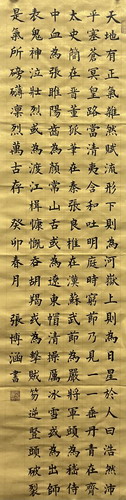 天地有正氣雜然賦流形下則為河嶽上則為日星於人曰浩然沛
乎塞蒼冥皇路當清夷含和吐明庭時窮節乃見一一垂丹青在齊
太史簡在晉董狐筆在秦張良椎在漢蘇武節為嚴將軍頭為嵇侍
中血為張睢陽齒為顏常山舌或為遼東帽清操厲冰雪或為出師
表鬼神泣壯烈或為渡江楫慷慨吞胡羯或為擊賊笏逆豎頭破裂
是氣所磅礴凜烈萬古存 癸卯春月 張博涵書